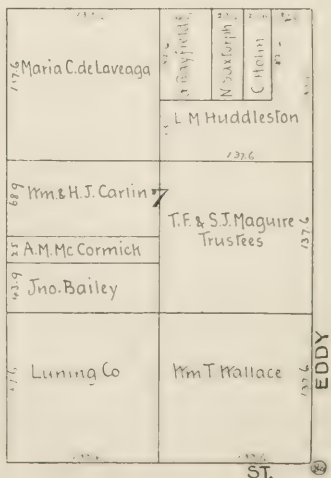 137.6
Maria C. de Laveaga
L M Huddleston
137.6
68.9
Wm. & H. J. Carlin
7
T. F. & S. J. Maguire
Trustees
137.6
25
A. M. Mc Cormick
43.9
Jno. Bailey
Luning Co
Wm T Wallace
137.6
EDDY
ST.